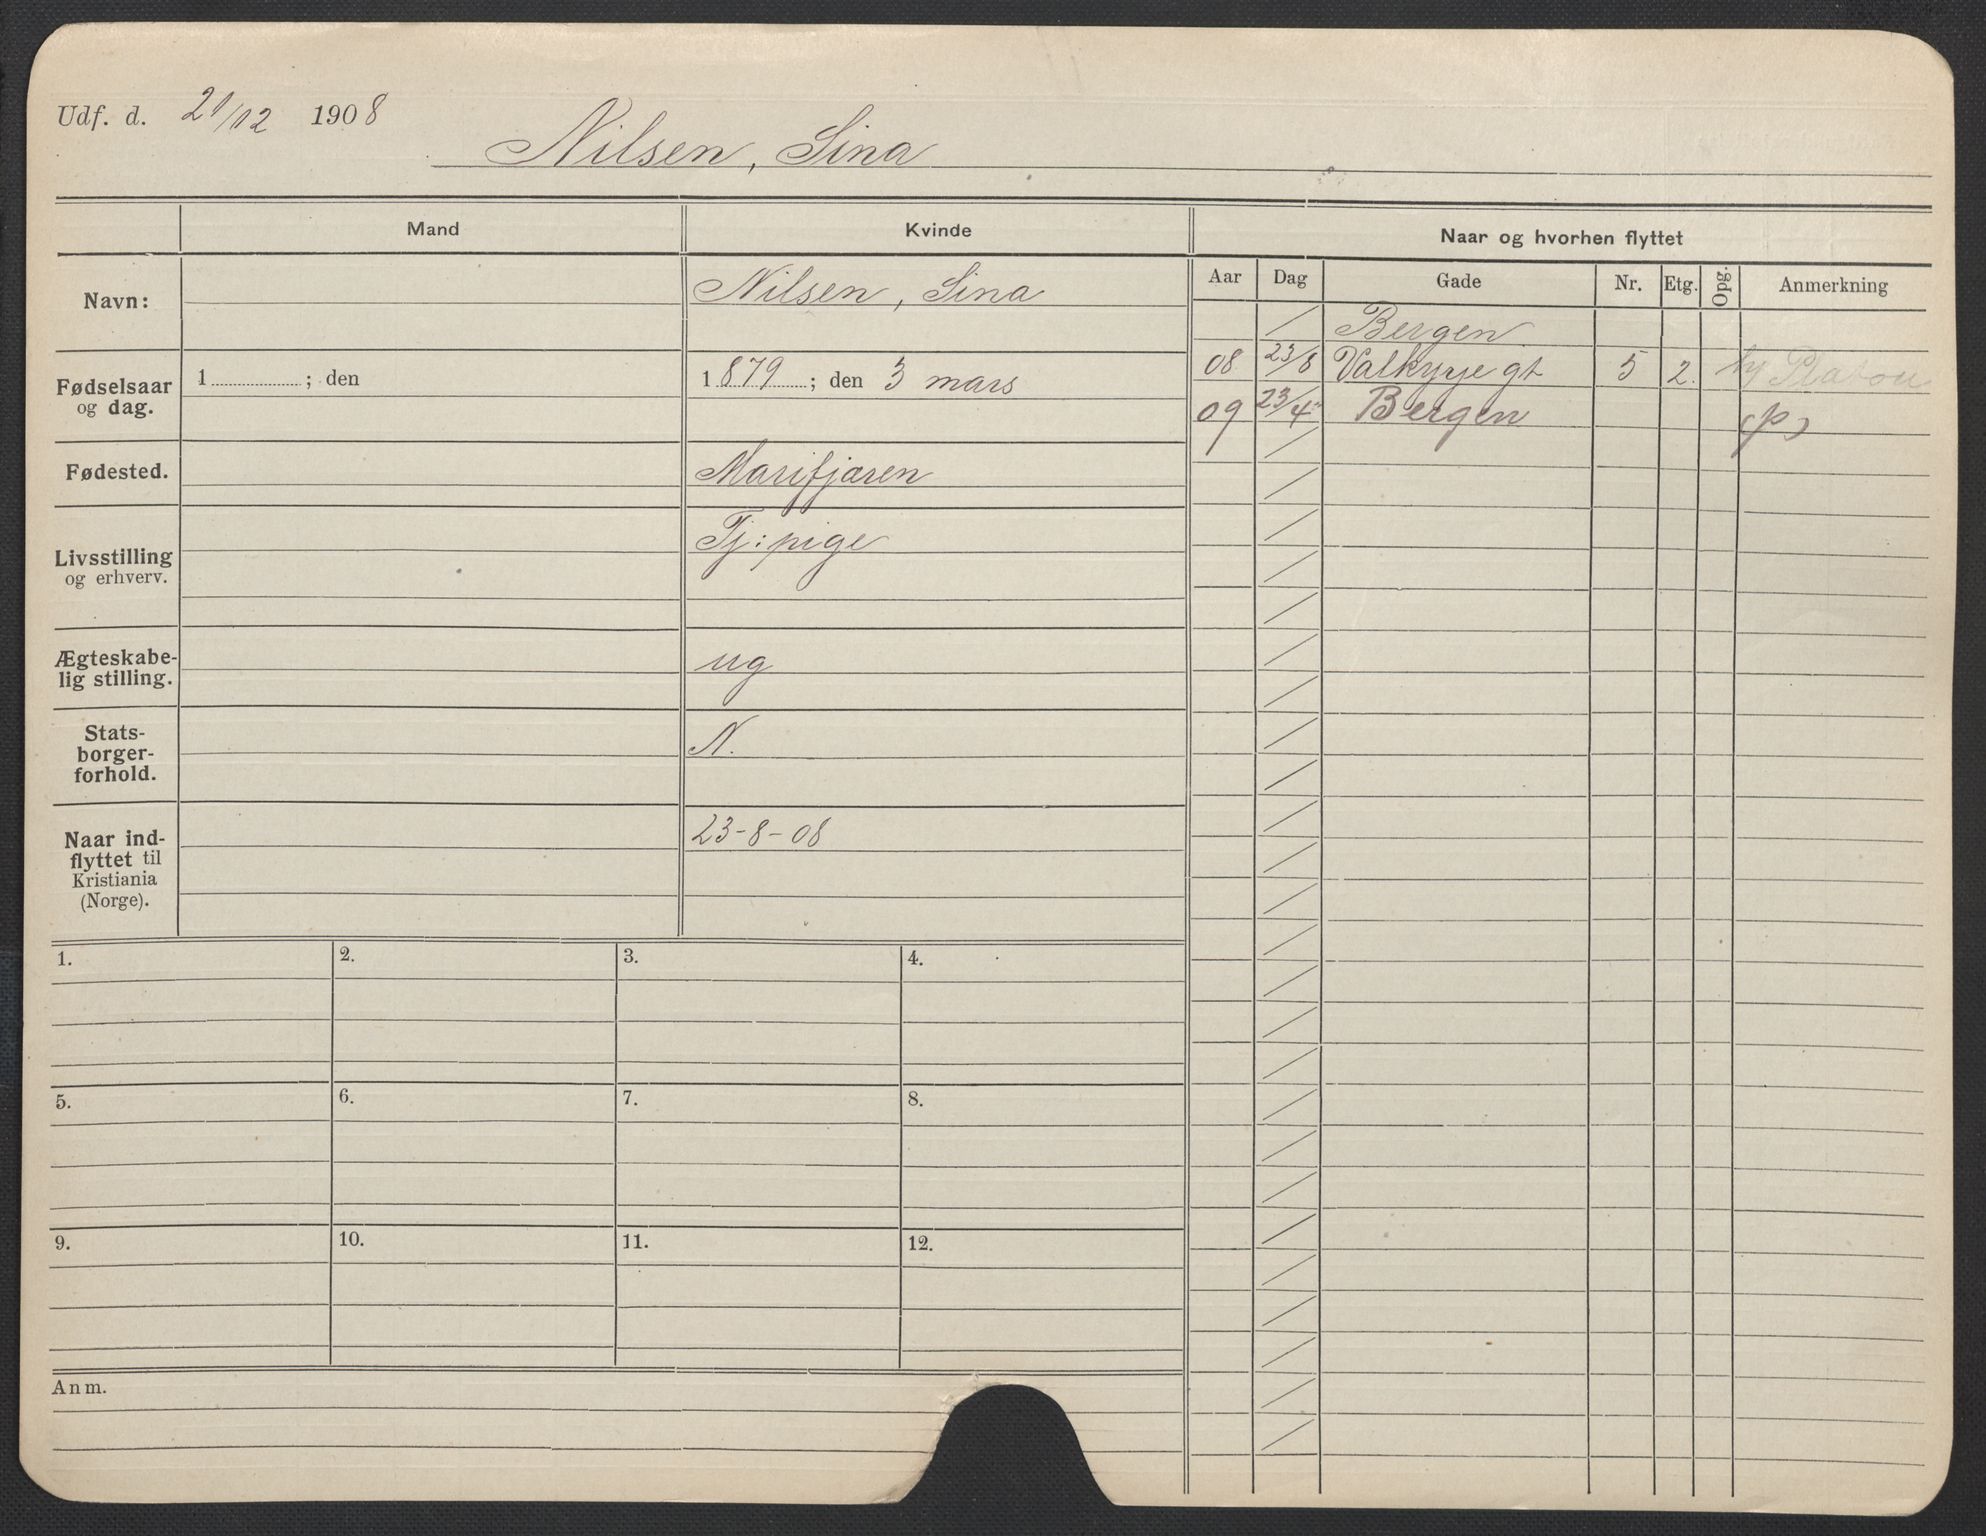 Udf. d. 21/12 1908
Nilsen, Sina
Mand Kvinde Naar og hvorhen flyttet
Aar Dag Gade Nr. Etg. Opg. Anmerkning
Navn: Nilsen, Sina
Bergen
08 23/8 Valkyrje gt 5 2. hj Platou
09 23/4 Bergen (p)
Fødselsaar
og dag.
1 ; den 1879 ; den 3 mars
Fødested. Marifjæren
Livsstilling
og erhverv.
Tj: pige
Ægteskabe-
lig stilling.
ug
Stats-
borger-
forhold.
N.
Naar ind-
flyttet til
Kristiania
(Norge).
23-8-08
1. 2. 3. 4.
5. 6. 7. 8.
9. 10. 11. 12.
Anm.